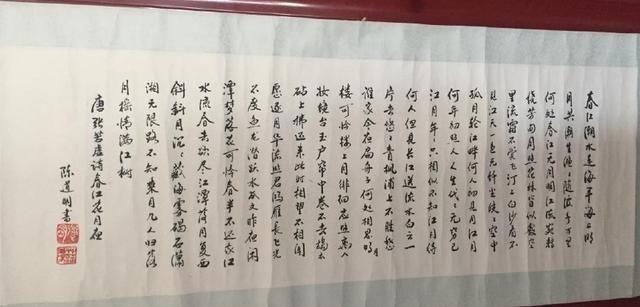 春江潮水连海平海上明
月共潮生滟滟随波千万里
何处春江无月明江流宛转
绕芳甸月照花林皆似霰空
里流霜不觉飞汀上白沙看不
见江天一色无纤尘皎皎空中
孤月轮江畔何人初见月江月
何年初照人人生代代无穷已
江月年年只相似不知江月待
何人但见长江送流水白云一
片去悠悠青枫浦上不胜愁
谁家今夜扁舟子何处相思明月
楼可怜楼上月徘徊应照离人
妆镜台玉户帘中卷不去捣衣
砧上拂还来此时相望不相闻
愿逐月华流照君鸿雁长飞光
不度鱼龙潜跃水成文昨夜闲
潭梦落花可怜春半不还家江
水流春去欲尽江潭落月复西
斜斜月沉沉藏海雾碣石潇
湘无限路不知乘月几人归落
月摇情满江树
唐张若虚诗春江花月夜
陈道明书